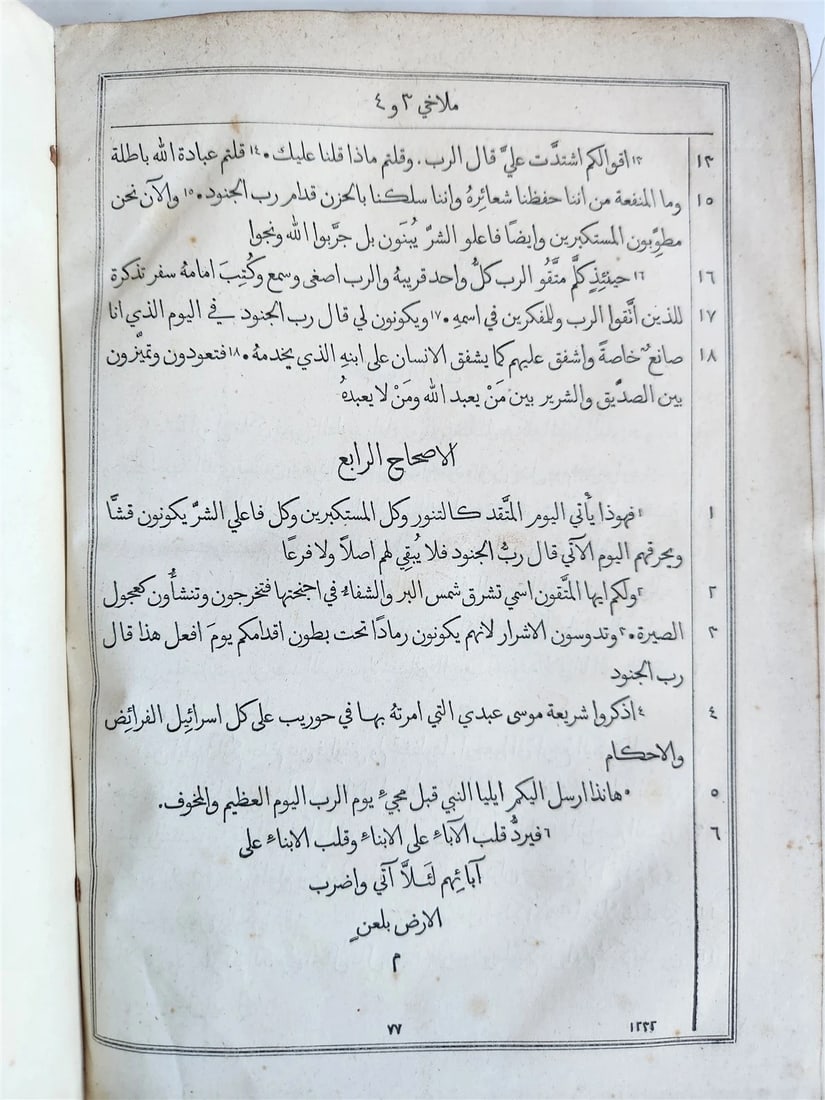 ملاخي ٣ و ٤
١٣ ١٣ اقوالكم اشتدَّت عليَّ قال الرب. وقلتم ماذا قلنا عليك • ١٤ قلتم عبادة الله باطلة
١٥ وما المنفعة من اننا حفظنا شعائِرهُ واننا سلكنا بالحزن قدام رب الجنود • ١٥ والآن نحن
مطوِّبون المستكبرين وايضًا فاعلو الشرّ يُبنَون بل جرَّبوا الله ونجوا
١٦ ١٦ حينئذٍ كلَّم متَّقُو الرب كلُّ واحد قريبهُ والرب اصغى وسمع وكُتِبَ امامهُ سفر تذكرة
١٧ للذين اتَّقوا الرب وللمفكرين في اسمهِ • ١٧ ويكونون لي قال رب الجنود في اليوم الذي انا
١٨ صانعٌ خاصةً واشفق عليهم كما يشفق الانسان على ابنهِ الذي يخدمهُ • ١٨ فتعودون وتميّزون
بين الصدّيق والشرير بين مَنْ يعبد الله ومَنْ لا يعبدهُ
الاصحاح الرابع
١ ١ فهوذا يأتي اليوم المتَّقد كالتنور وكل المستكبرين وكل فاعلي الشرّ يكونون قشًّا
ويحرقهم اليوم الآتي قال ربُّ الجنود فلا يُبقِي لهم اصلاً ولا فرعًا
٢ ٢ ولكم ايها المتَّقون اسمي تشرق شمس البر والشفاءُ في اجنحتها فتخرجون وتنشأُون كعجول
٣ الصيرة • ٣ وتدوسون الاشرار لانهم يكونون رمادًا تحت بطون اقدامكم يومَ افعل هذا قال
رب الجنود
٤ ٤ اذكروا شريعة موسى عبدي التي امرتهُ بها في حوريب على كل اسرائِيل الفرائِض
والاحكام
٥ ٥ هانذا ارسل اليكم ايليا النبي قبل مجيءِ يوم الرب اليوم العظيم والمخوف.
٦ ٦ فيردُّ قلب الآباءِ على الابناءِ وقلب الابناءِ على
آبائِهم لئلاَّ آتي واضرب
الارض بلعنٍ
م
١٢٣٢ ٧٧